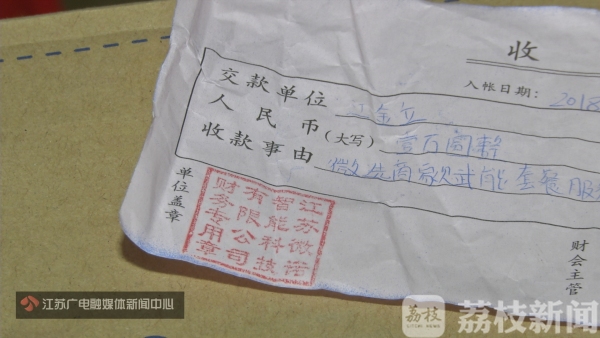 收
入帐日期: 2018
交款单位 金立
人民币(大写) 壹万圆整
收款事由 微选商家赋能套餐服
单位盖章
江苏微诺
智能科技
有限公司
财务专用章
财会主管
江苏广电融媒体新闻中心
荔枝
荔枝新闻